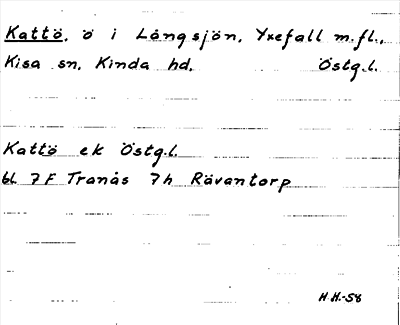 Kattö, ö i Långsjön, Yxefall m.fl.,
Kisa sn, Kinda hd, Östg.l.
Kattö ek Östg.l.
bl. 7F Tranås 7h Rävantorp
H.H.-58